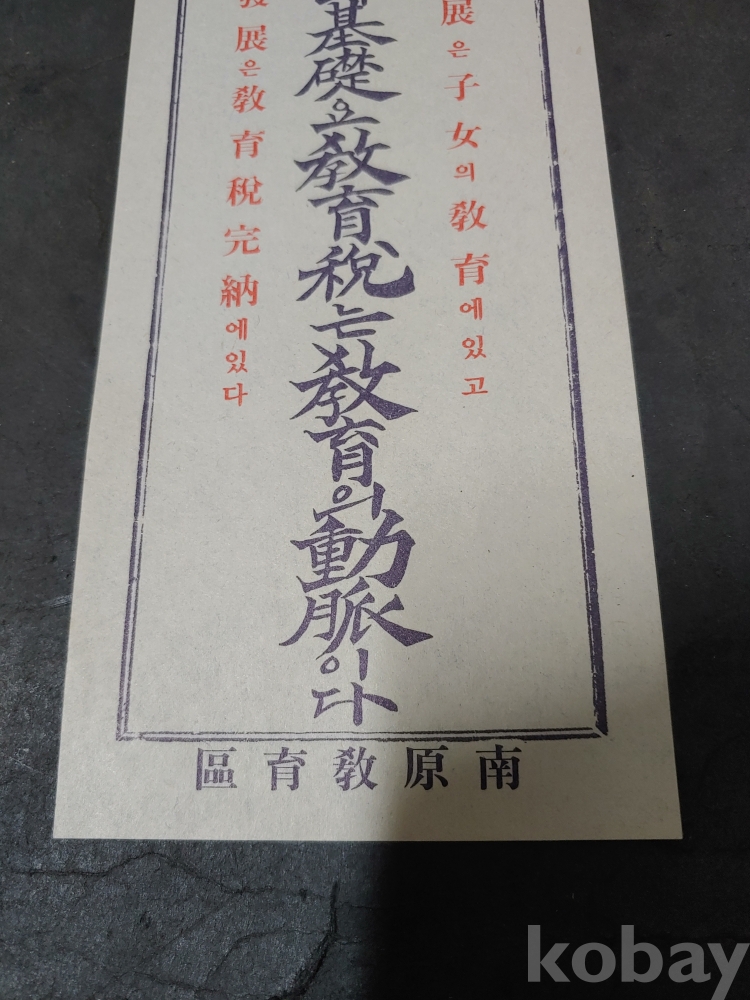 展은子女의敎育에있고
基礎요敎育稅는敎育의動脈이다
展은敎育稅完納에있다
南原敎育區
kobay